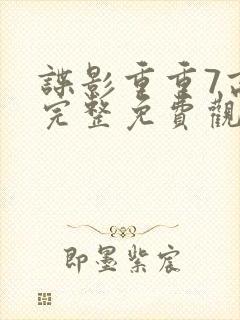 諜影重重7高
完整免費觀
即墨紫宸